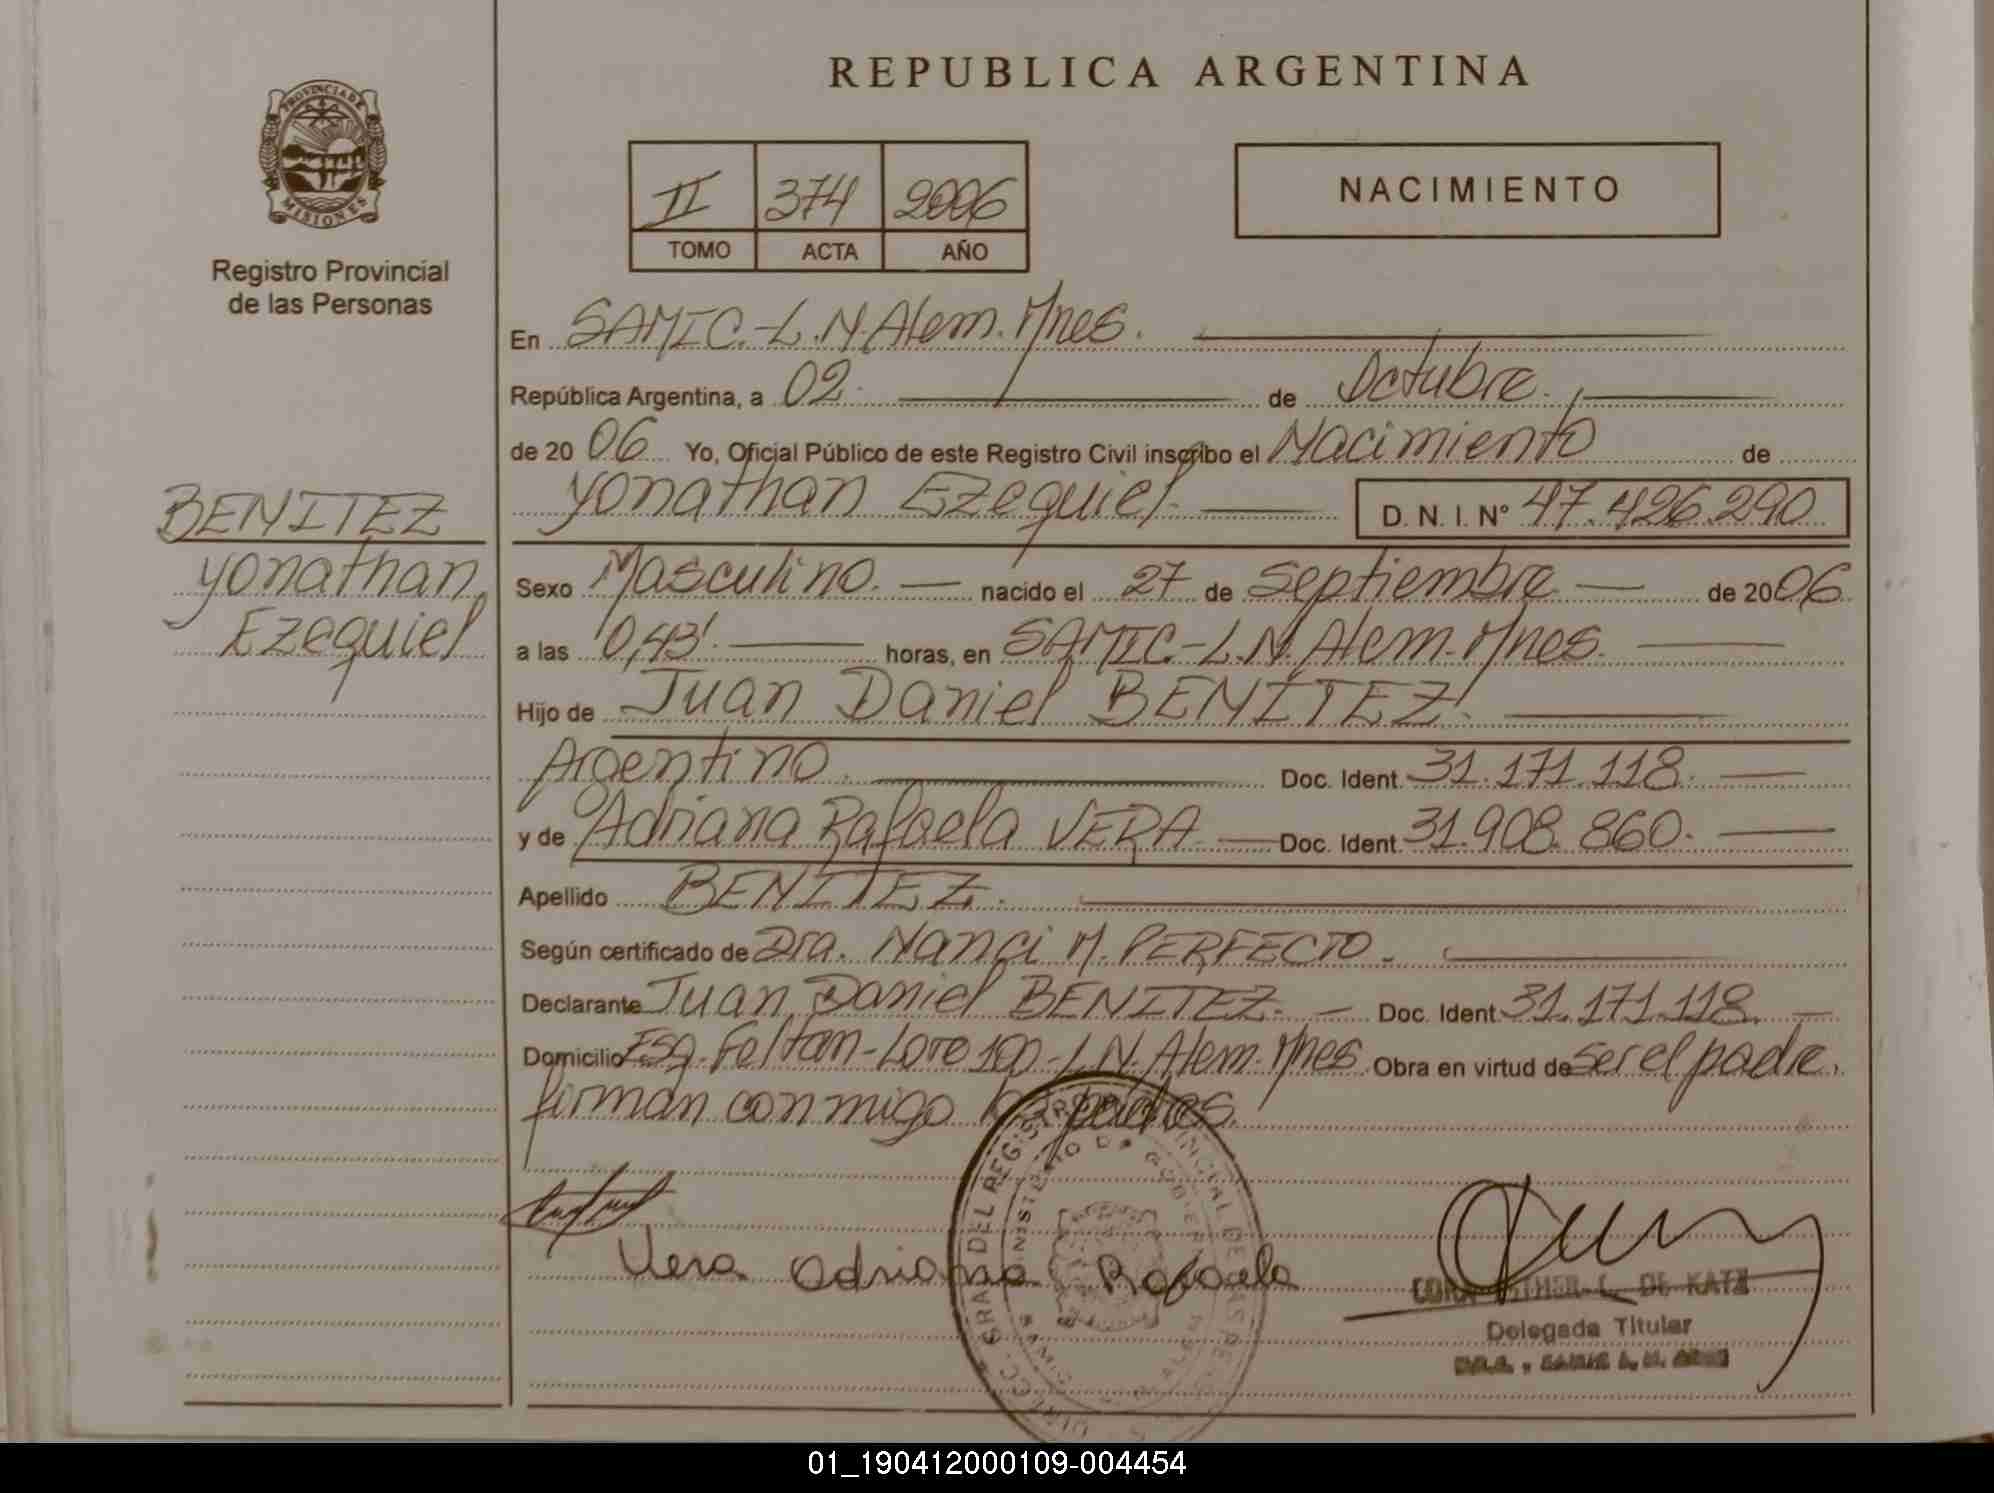 REPUBLICA ARGENTINA
PROVINCIA DE MISIONES
Registro Provincial
de las Personas
II 374 2006
TOMO ACTA AÑO
NACIMIENTO
En SAMIC.-L.N.Alem.Mnes.
República Argentina, a 02. de Octubre.
de 2006 Yo, Oficial Público de este Registro Civil inscribo el Nacimiento de
Yonathan Ezequiel. D. N. I. N° 47.426.290
BENITEZ
Yonathan
Ezequiel
Sexo Masculino. nacido el 27 de Septiembre de 2006
a las 0,43'. horas, en SAMIC.-L.N.Alem.Mnes.
Hijo de Juan Daniel BENITEZ.
Argentino. Doc. Ident. 31.171.118.
y de Adriana Rafaela VERA Doc. Ident. 31.908.860.
Apellido BENITEZ.
Según certificado de Dra. Nanci M. PERFECTO.
Declarante Juan Daniel BENITEZ. Doc. Ident. 31.171.118.
Domicilio Esq. -Lote 100-L.N.Alem.Mnes. Obra en virtud de ser el padre.
firman conmigo los padres.
Vera Adriana Rafaela
DE KATZ
Delegada Titular
01_190412000109-004454